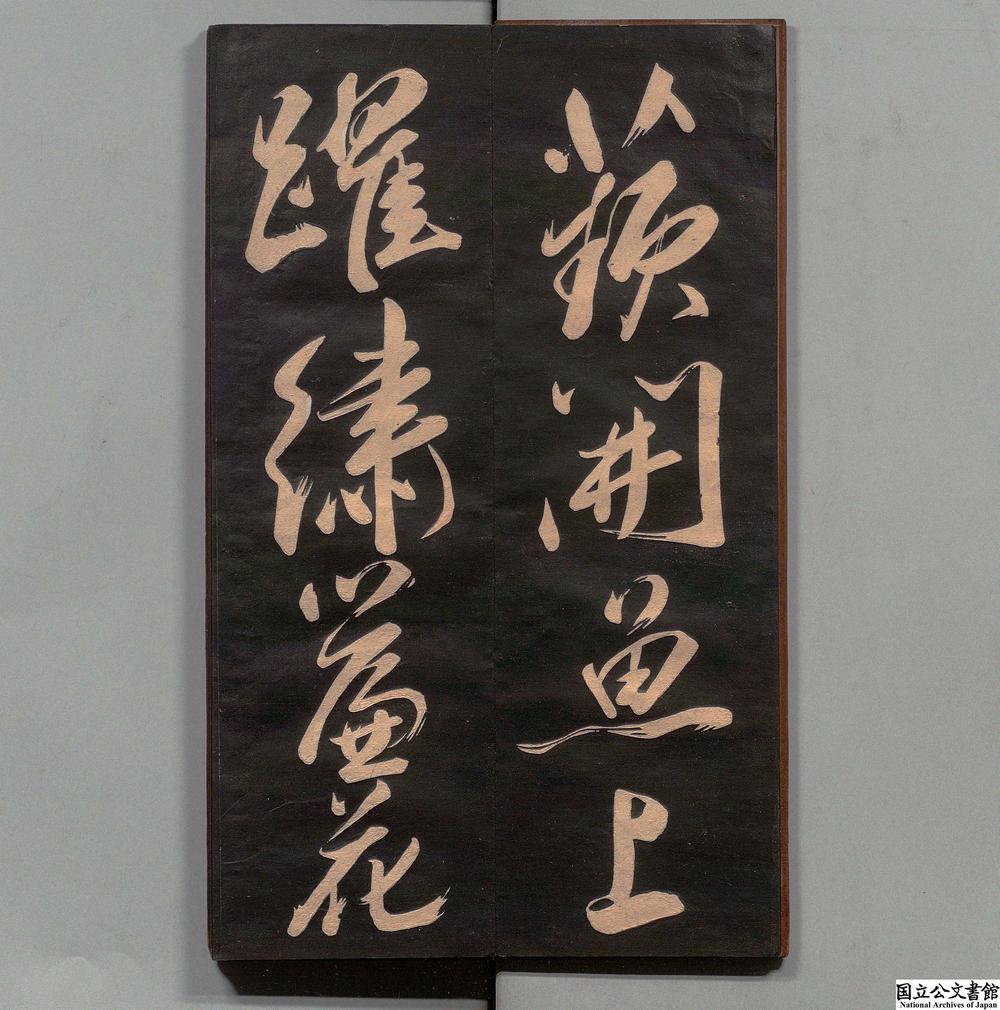 蘋開魚上
躍繡簾花
国立公文書館
National Archives of Japan